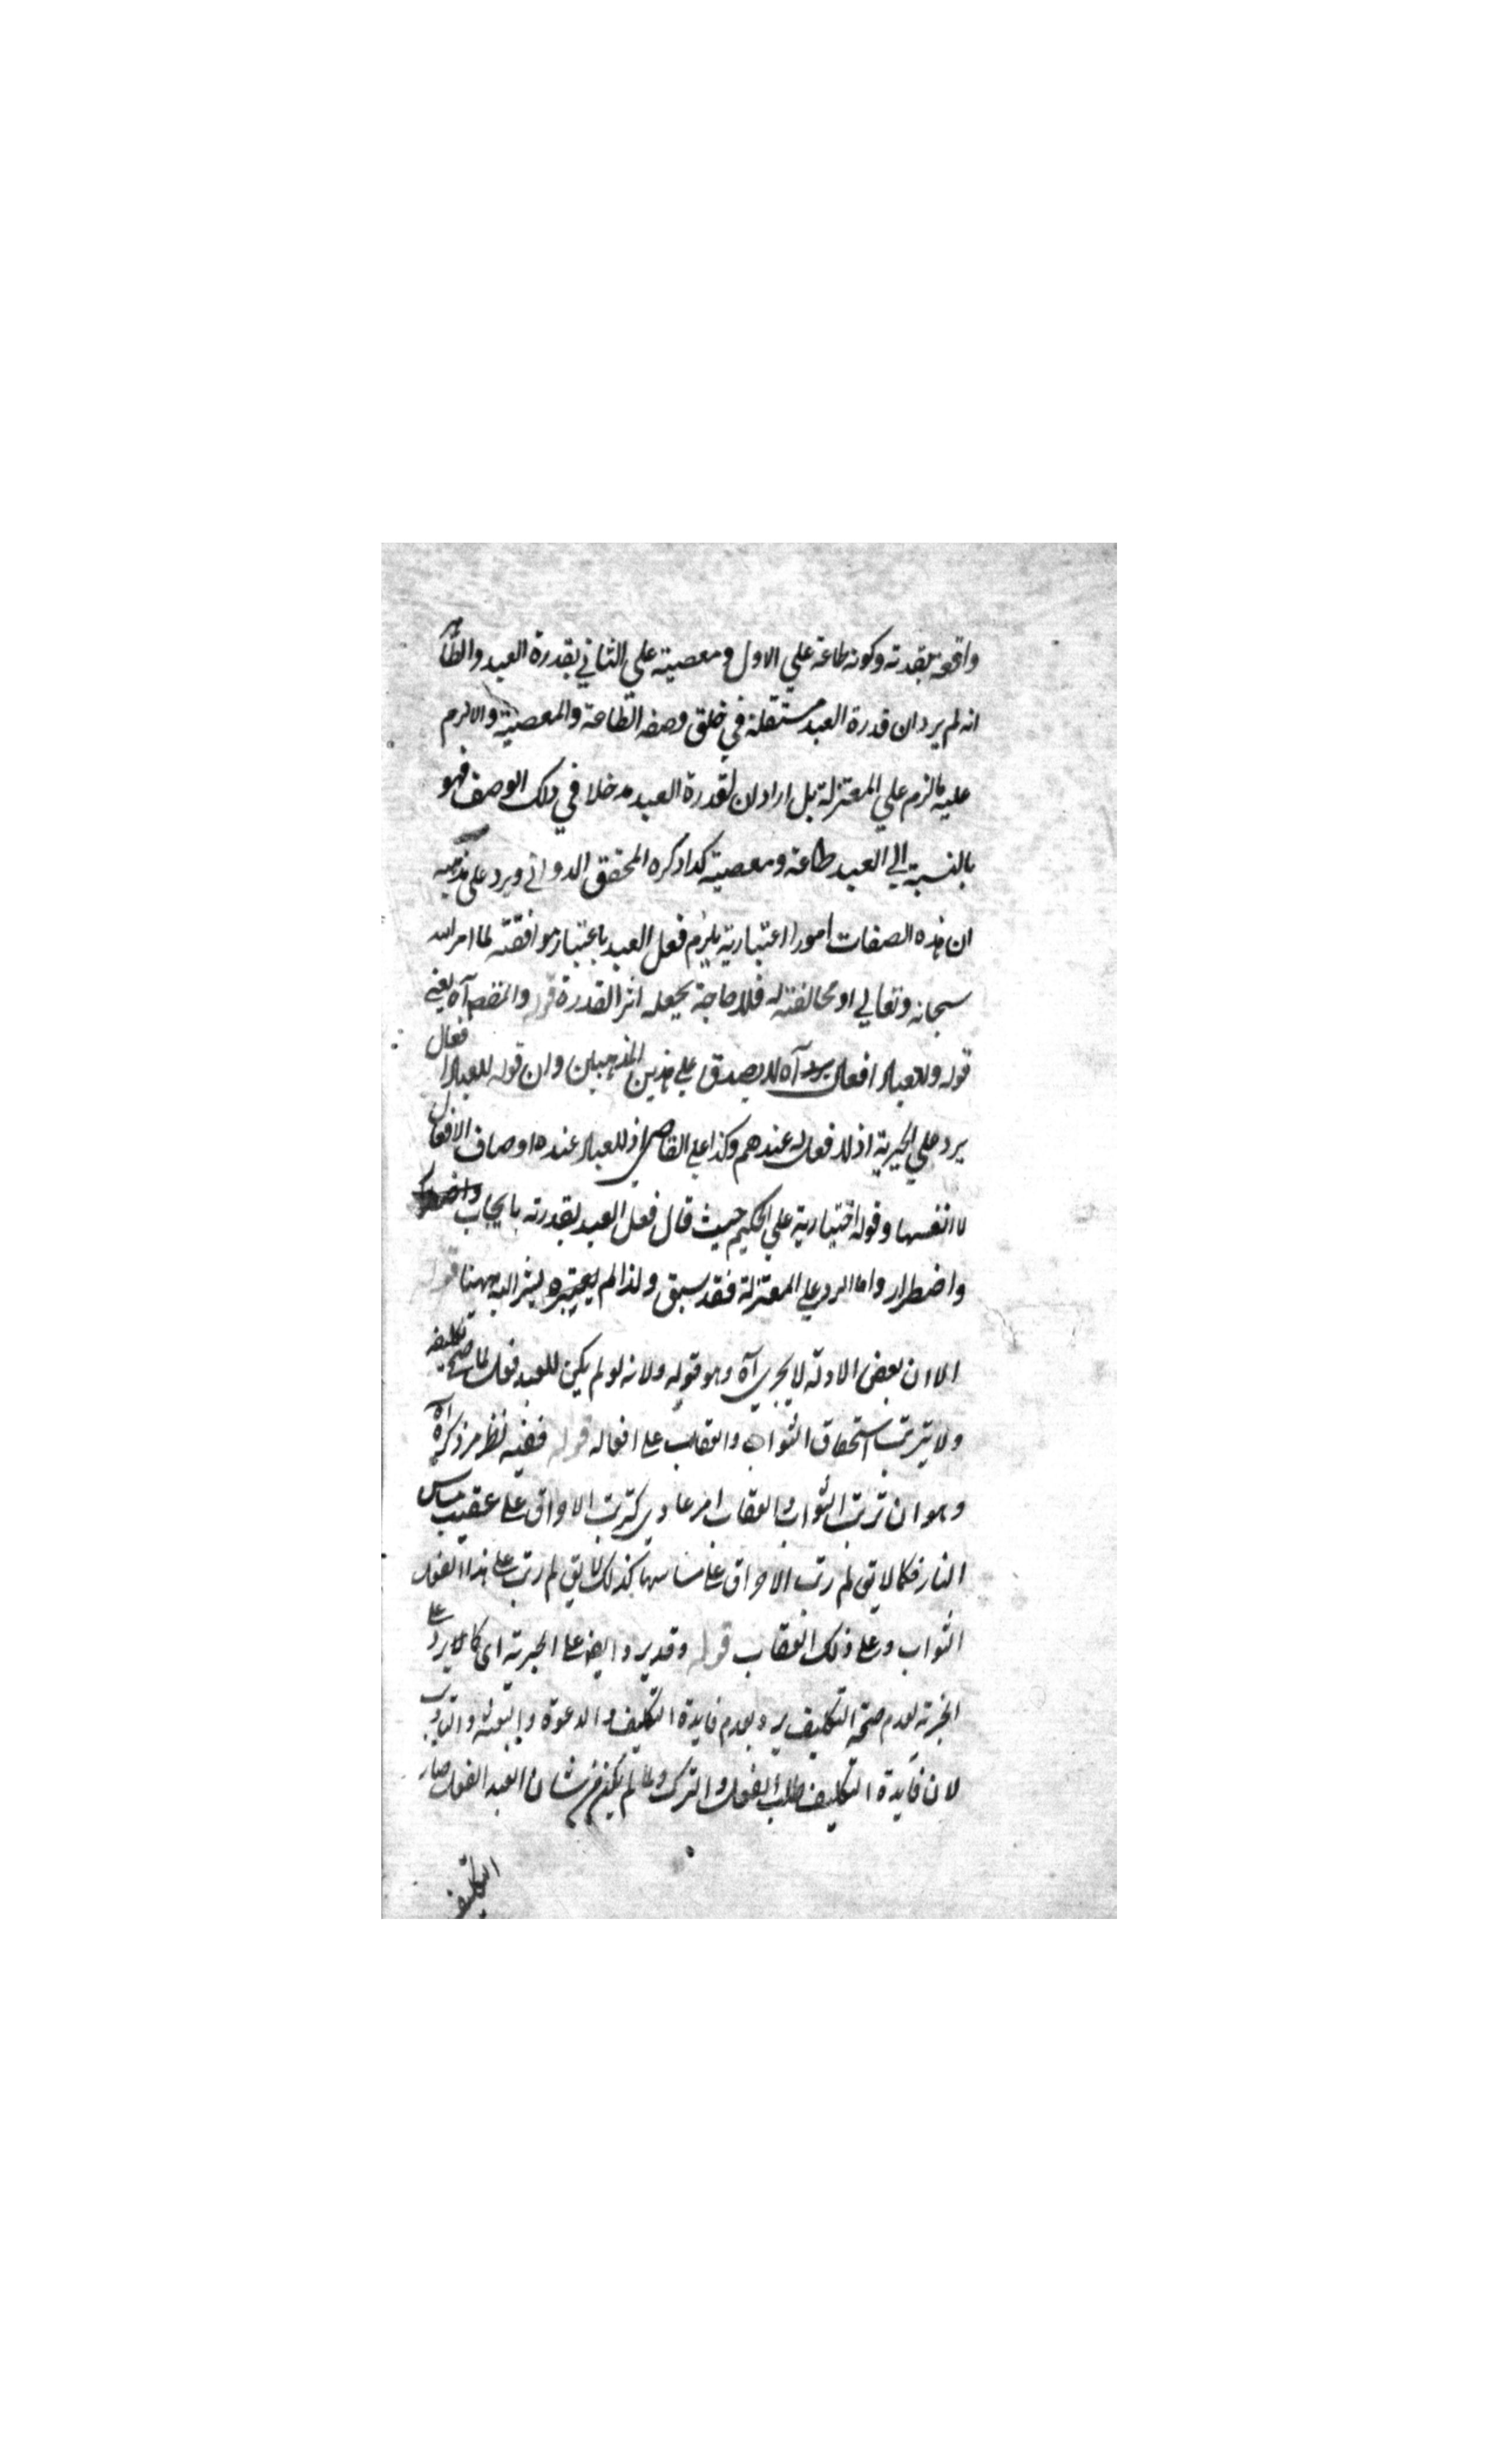 واقعة بقدرته وكونه طاعة علي الاول ومعصية علي الثاني بقدرة العبد والظاهر
انه لم يرد ان قدرة العبد مستقلة في خلق وصفه الطاعة والمعصية والا لزم
عليه ما لزم علي المعتزلة بل اراد ان لقدرة العبد مدخلا في ذلك الوصف فهو
بالنسبة الي العبد طاعة ومعصية كذا ذكره المحقق الدواني ويرد على مذهبه
ان هذه الصفات امور اعتبارية يلزم فعل العبد باعتبار موافقته لما امر الله
سبحانه وتعالي او مخالفته له فلا حاجة بجعله اثر القدرة قوله والنضم آه يعني
قوله وللعباد افعال يرد آه لا يصدق علي هذين المذهبين وان قوله للعباد افعال
يرد علي الجبرية اذ لا فعل له عندهم وكذا علي القاضي اذ للعباد عنده اوصاف الافعال
لا انفسها وقوله اختيارية علي الحكيم حيث قال فعل العبد بقدرته بايجاب
واضطرار واما الرد علي المعتزلة فقد سبق ولذا لم يعتبره يشر اليه ههنا قوله
الا ان بعض الادلة لا يجري آه وهو قوله ولانه لو لم يكن للعبد فعل لما صح تكليفه
ولا يترتب استحقاق الثواب والعقاب على افعاله قوله ففيه نظر مر ذكره آه
وهو ان ترتب الثواب والعقاب امر عادي كترتب الاحراق على عقيب مساس
النار فكما لا يق لم رتب الاحراق على مساسها كذلك لا يق لم رتب على هذا الفعل
الثواب وعلى ذلك العقاب قوله وقد يرد ايضا على الجبرية اى كما يرد على
الجبرية لعدم صحة التكليف يرد بعدم فايدة التكليف والدعوة والبعثة والتاديب
لان فايدة التكليف طلب الفعل والترك ولما لم يكن من شان العبد الفعل صار
التكليف